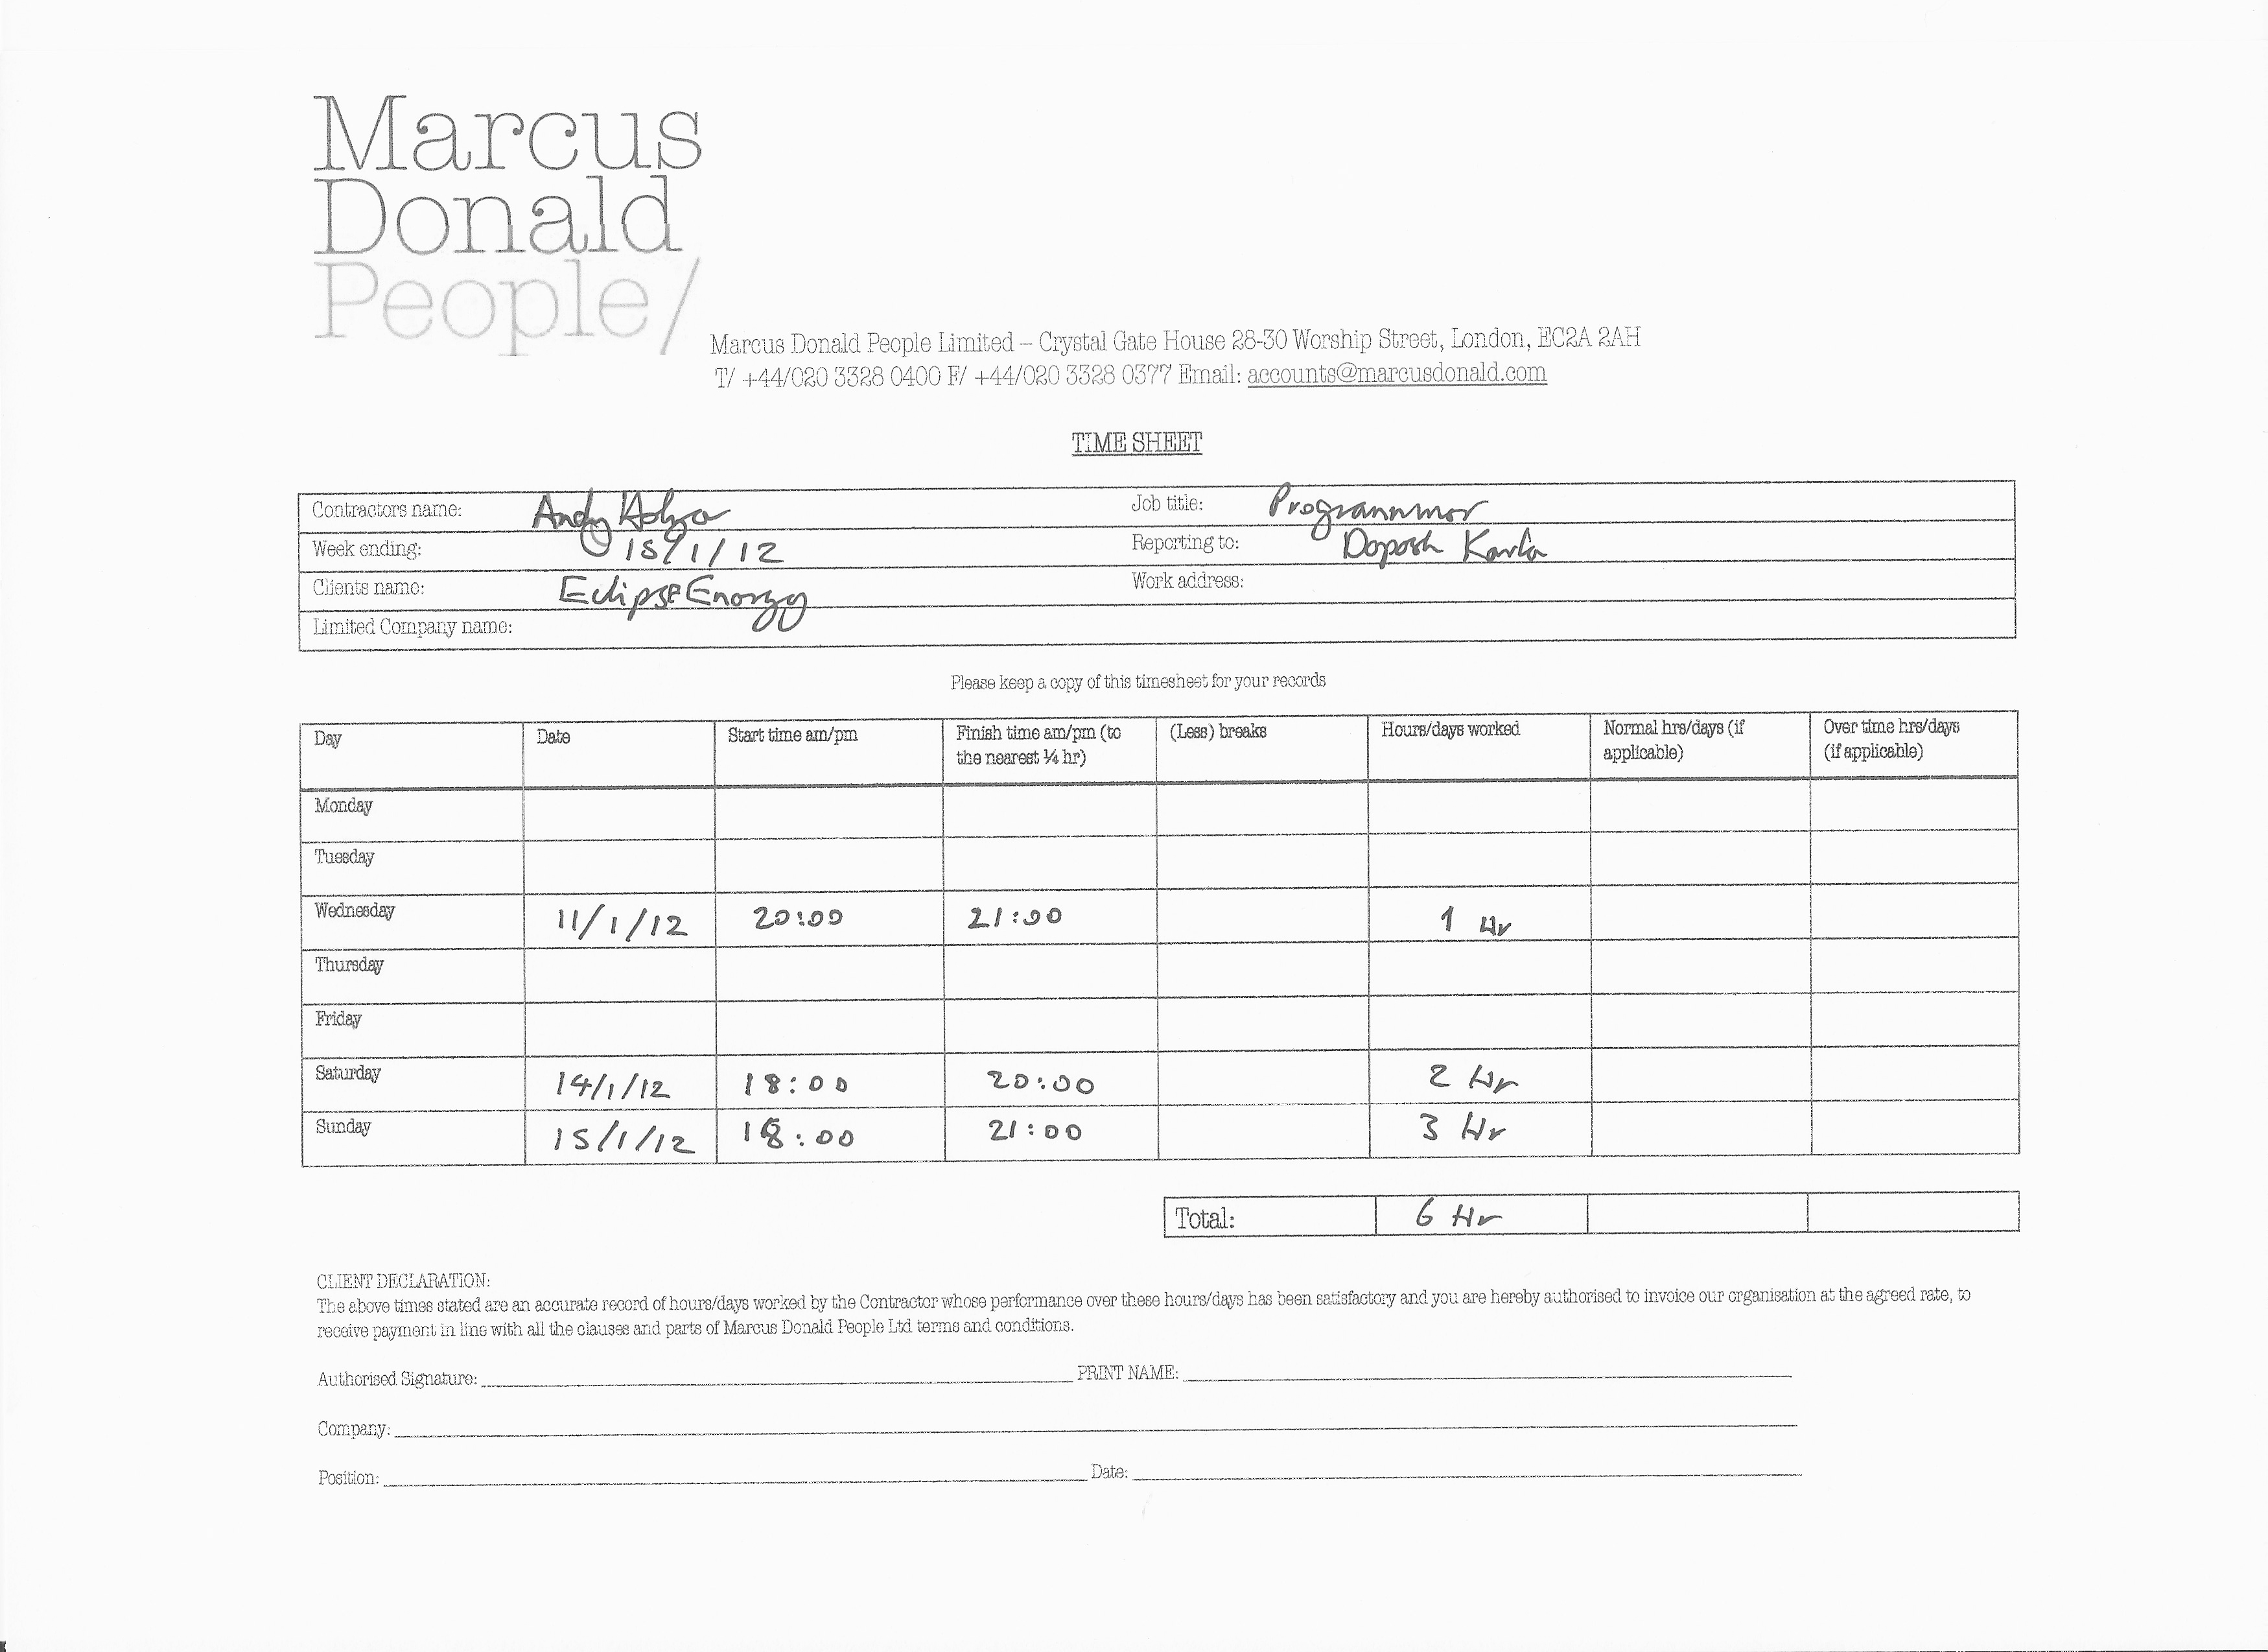 Marcus
Donald
People/
Marcus Donald People Limited – Crystal Gate House 28-30 Worship Street, London, EC2A 2AH
T/ +44/020 3328 0400 F/ +44/020 3328 0377 Email: accounts@marcusdonald.com
TIME SHEET
Contractors name: Andy Job title: Programmer
Week ending: 15/1/12 Reporting to:
Clients name: Eclipse Energy Work address:
Limited Company name:
Please keep a copy of this timesheet for your records
Day Date Start time am/pm Finish time am/pm (to the nearest ¼ hr) (Less) breaks Hours/days worked Normal hrs/days (if applicable) Over time hrs/days (if applicable)
Monday
Tuesday
Wednesday 11/1/12 20:00 21:00 1 Hr
Thursday
Friday
Saturday 14/1/12 18:00 20:00 2 Hr
Sunday 15/1/12 18:00 21:00 3 Hr
Total: 6 Hr
CLIENT DECLARATION:
The above times stated are an accurate record of hours/days worked by the Contractor whose performance over these hours/days has been satisfactory and you are hereby authorised to invoice our organisation at the agreed rate, to
receive payment in line with all the clauses and parts of Marcus Donald People Ltd terms and conditions.
Authorised Signature: PRINT NAME:
Company:
Position: Date: